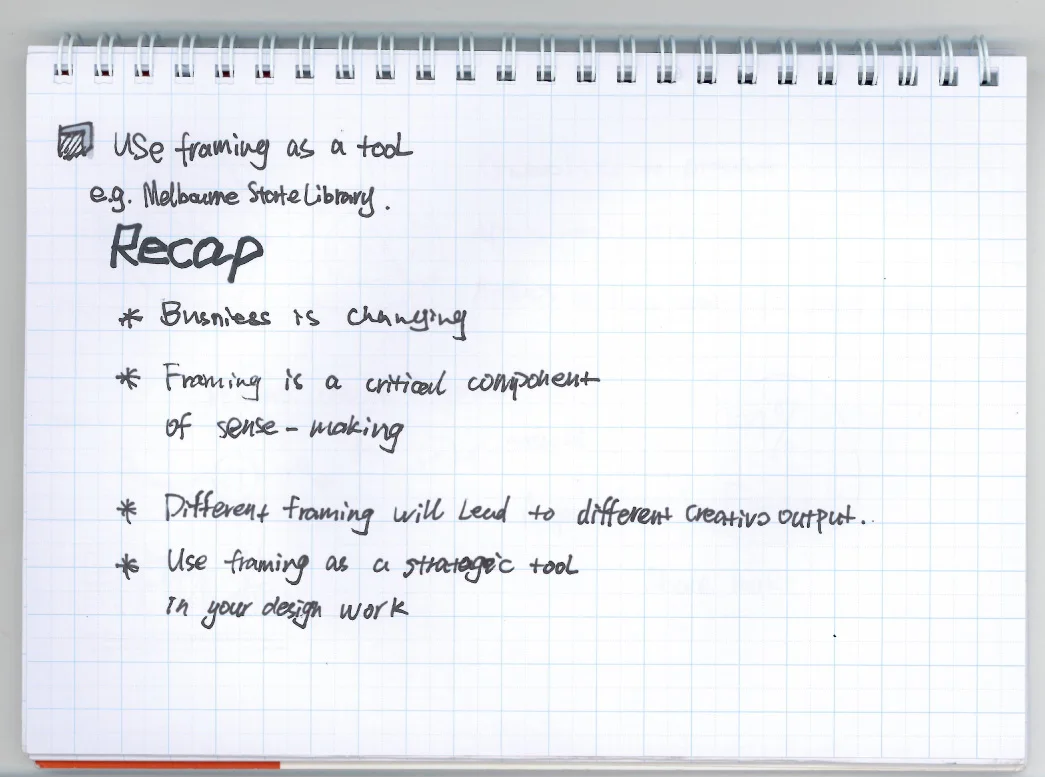 Use framing as a tool
e.g. Melbourne State Library.
Recap
* Busniess is changing
* Framing is a critical component
of sense-making
* Different framing will lead to different creative output.
* Use framing as a strategic tool
in your design work